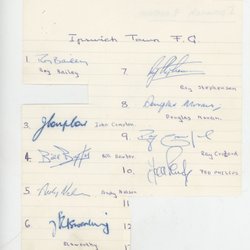 Ipswich Town F.C.
1. Roy Bailey
Roy Bailey
3. John Compton
4. Bill Baxter Bill Baxter
5. Andy Nelson Andy Nelson
6.
7.
Roy Stephenson
8. Douglas Moran
Douglas Moran
9.
Ray Crawford
10
Ted Phillips
11
12